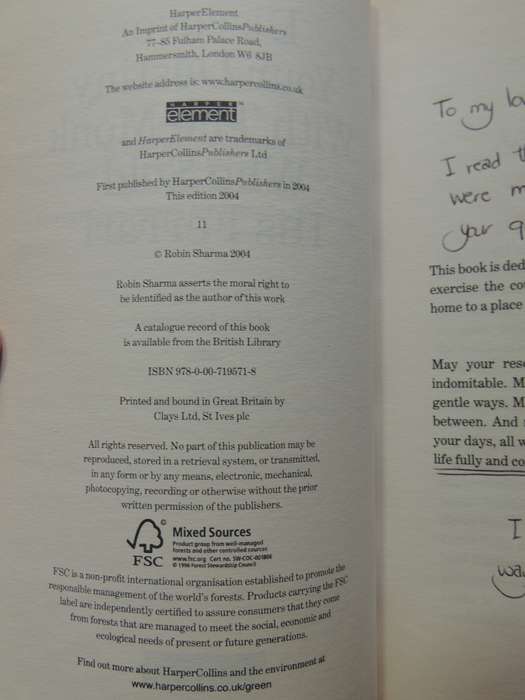 HarperElement
An Imprint of HarperCollinsPublishers
77–85 Fulham Palace Road,
Hammersmith, London W6 8JB
The website address is: www.harpercollins.co.uk
HARPER
element™
and HarperElement are trademarks of
HarperCollinsPublishers Ltd
First published by HarperCollinsPublishers in 2004
This edition 2004
11
© Robin Sharma 2004
Robin Sharma asserts the moral right to
be identified as the author of this work
A catalogue record of this book
is available from the British Library
ISBN 978-0-00-719571-8
Printed and bound in Great Britain by
Clays Ltd, St Ives plc
All rights reserved. No part of this publication may be
reproduced, stored in a retrieval system, or transmitted,
in any form or by any means, electronic, mechanical,
photocopying, recording or otherwise without the prior
written permission of the publishers.
FSC
Mixed Sources
Product group from well-managed
forests and other controlled sources
www.fsc.org Cert no. SW-COC-001806
© 1996 Forest Stewardship Council
FSC is a non-profit international organisation established to promote the
responsible management of the world's forests. Products carrying the FSC
label are independently certified to assure consumers that they come
from forests that are managed to meet the social, economic and
ecological needs of present or future generations.
Find out more about HarperCollins and the environment at
www.harpercollins.co.uk/green
To my
I read
were
your
This book is
exercise the
home to a place
May your
indomitable.
gentle ways.
between. And
your days, all
life fully and
I